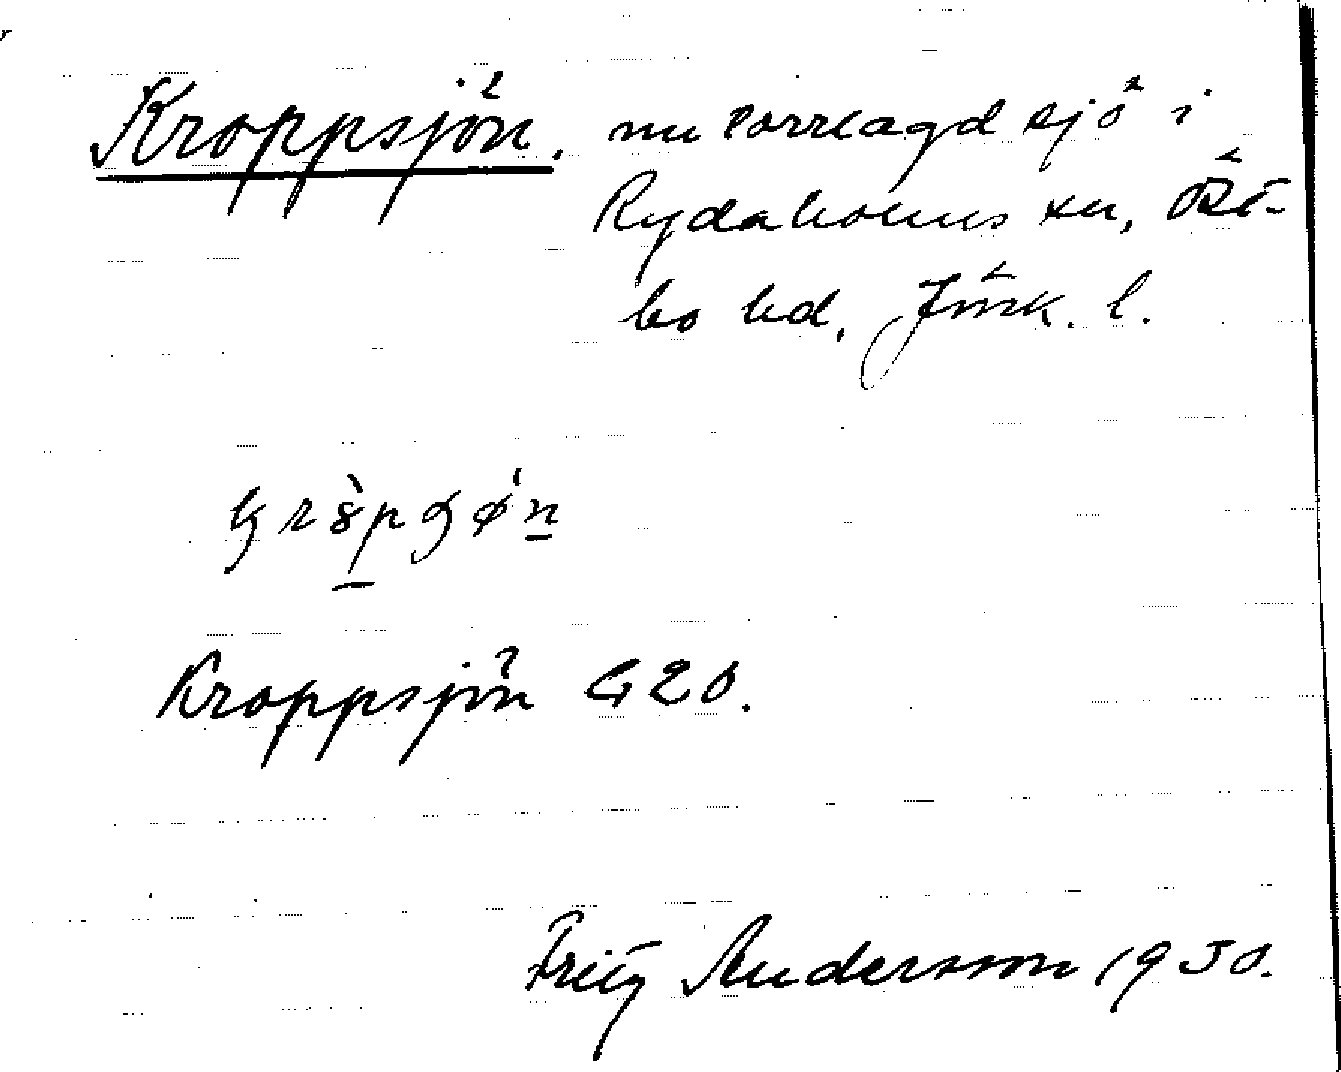 Kroppsjön. nu torrlagd sjö i
Rydaholms sn, Öst-
bo hd, Jönk. l.
Kroppsjön G20.
Fritz Andersson 1930.